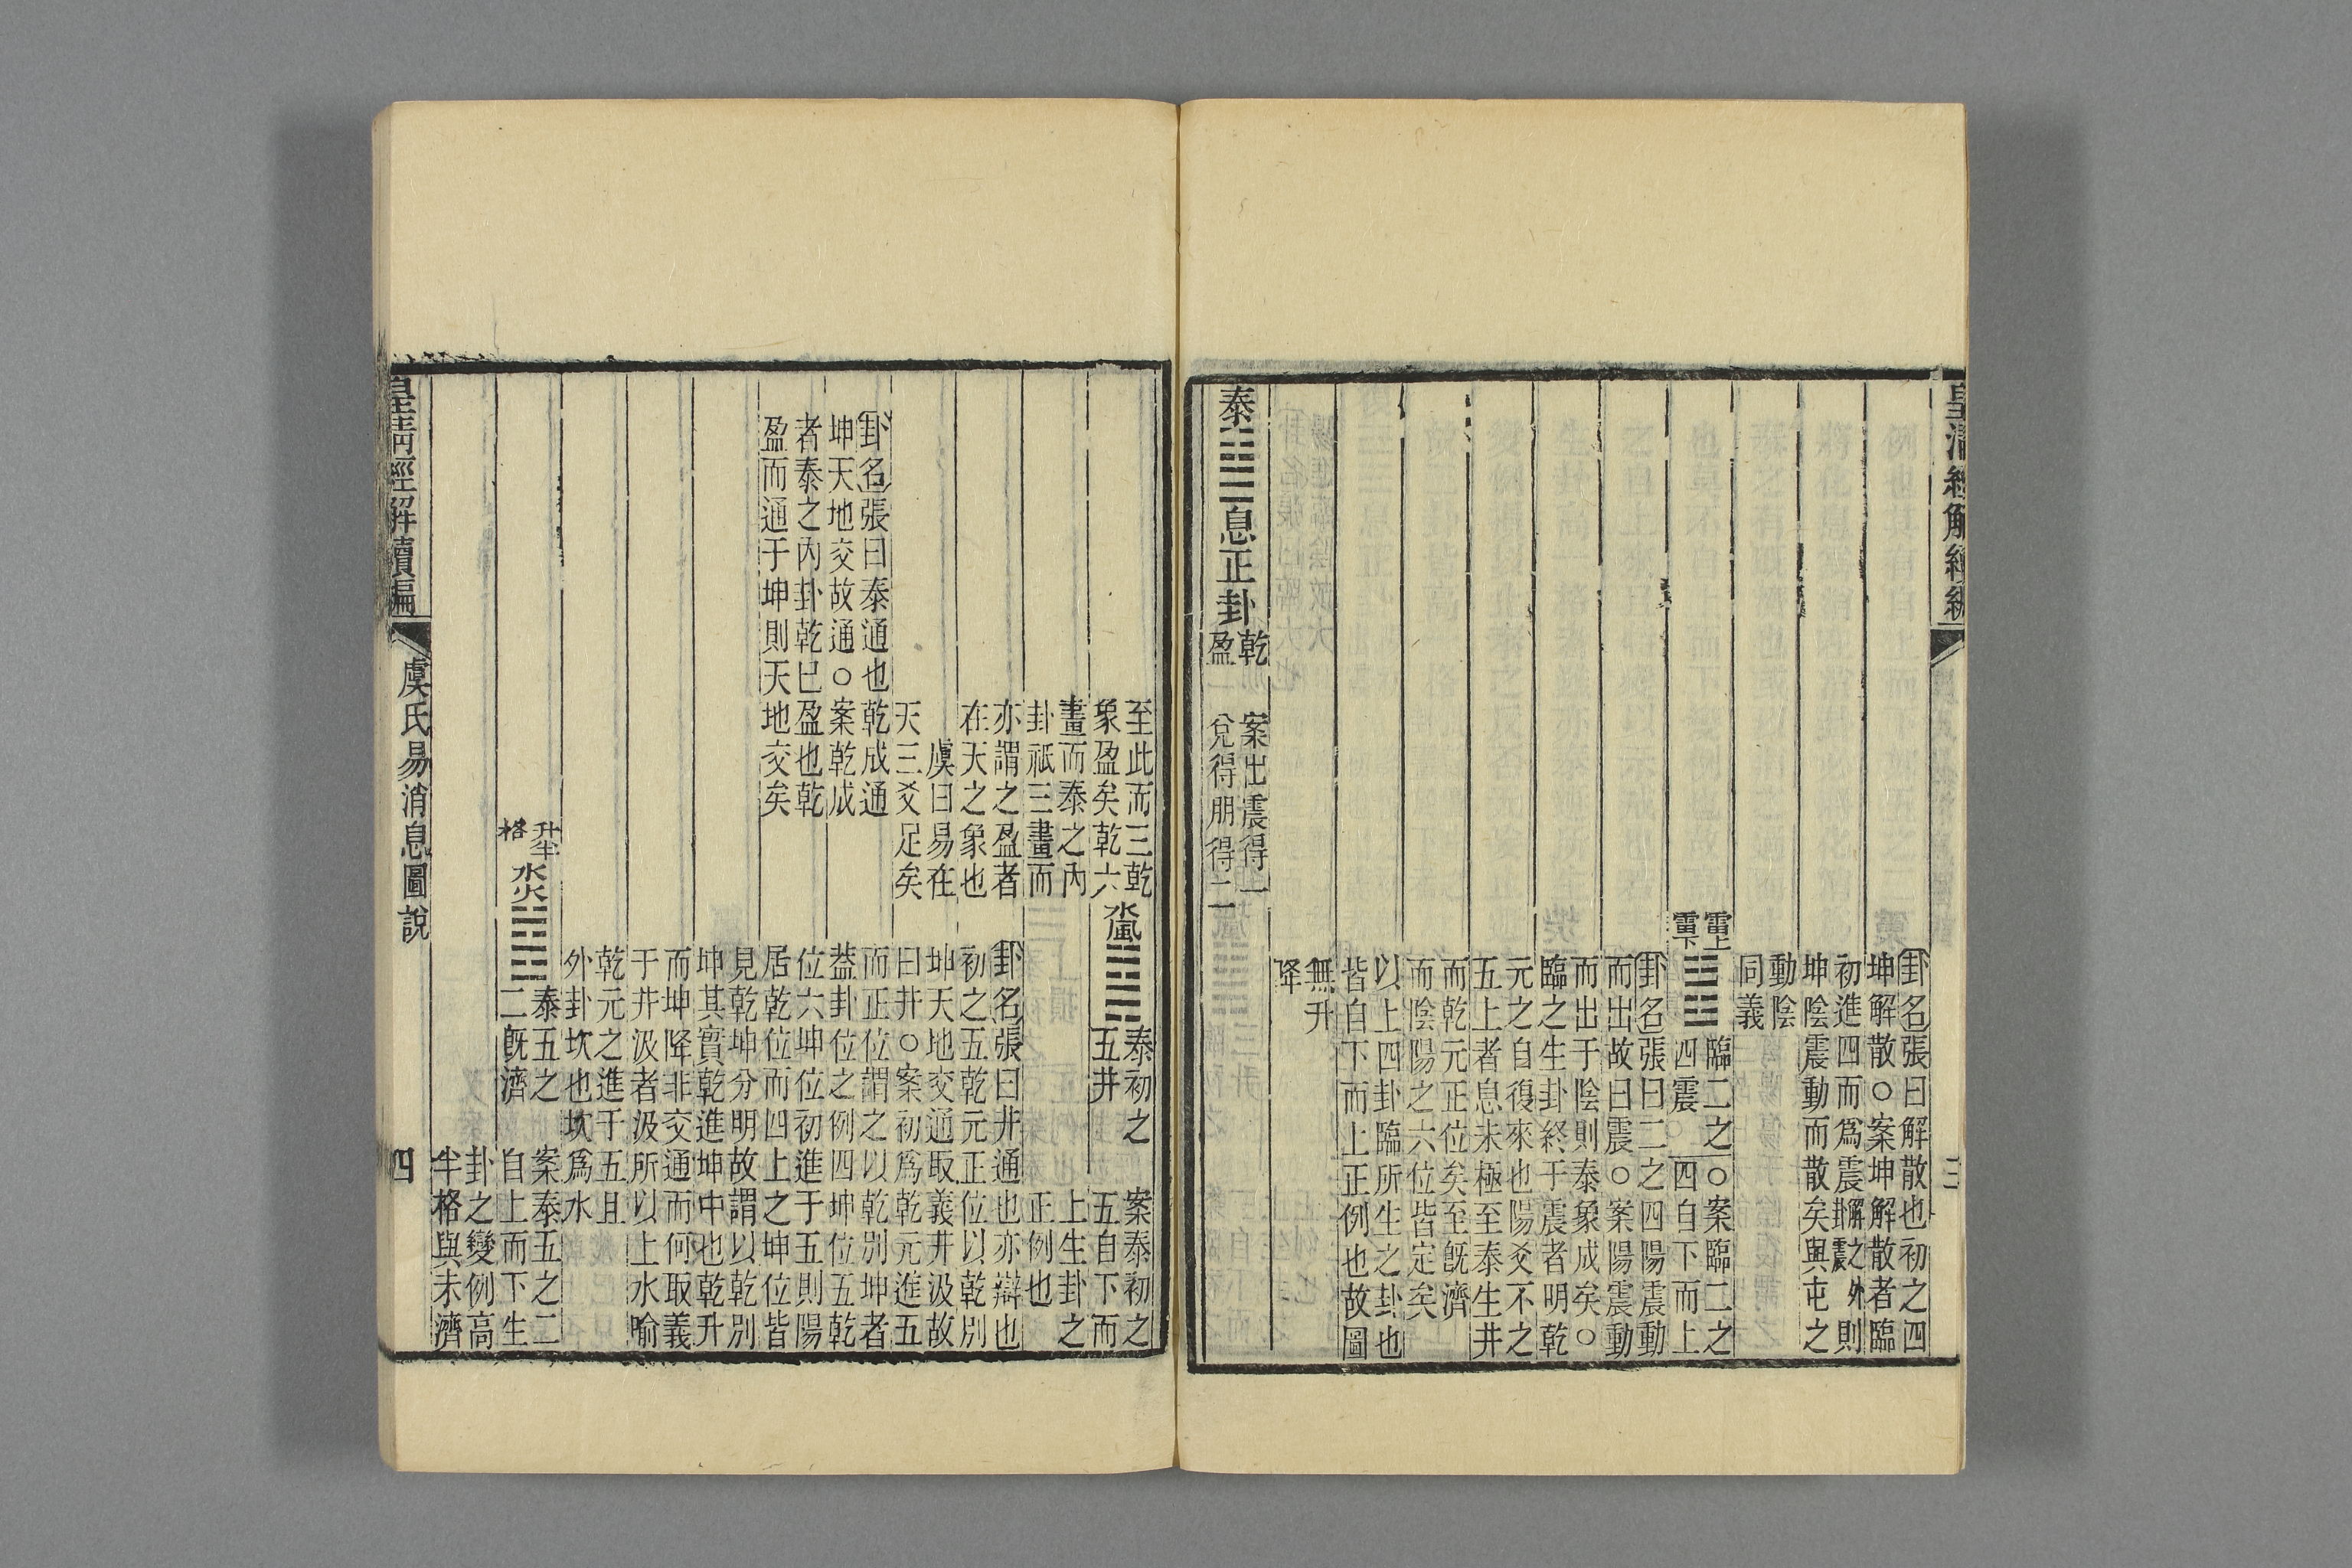 皇清經解續編
三
卦名張曰解散也初之四
坤解散○案坤解散者臨
初進四而爲震解之外
卦震則
坤陰震動而散矣與屯之
動陰
同義
雷上
雷下
䷲
臨二之
四震
○案臨二之
四自下而上
卦名張曰二之四陽震動
而出故曰震○案陽震動
而出于陰則泰象成矣○
臨之生卦終于震者明乾
元之自復來也陽爻不之
五上者息未極至泰生井
而乾元正位矣至既濟
而陰陽之六位皆定矣
以上四卦臨所生之卦也
皆自下而上正例也故圖
無升
降
泰䷊息正卦
乾
盈
案出震得一
兌得朋得二
至此而三乾
象盈矣乾六
畫而泰之內
卦祇三畫而
亦謂之盈者
在天之象也
虞曰易在
天三爻足矣
卦名張曰泰通也乾成通
坤天地交故通○案乾成
者泰之內卦乾已盈也乾
盈而通于坤則天地交矣
水風䷯
泰初之
五井
案泰初之
五自下而
上生卦之
正例也
卦名張曰井通也亦辯也
初之五乾元正位以乾別
坤天地交通取義井汲故
曰井○案初爲乾元進五
而正位謂之以乾別坤者
葢卦位之例四坤位五乾
位六坤位初進于五則陽
居乾位而四上之坤位皆
見乾坤分明故謂以乾別
坤其實乾進坤中也乾升
而坤降非交通而何取義
于井汲者汲所以上水喻
乾元之進于五且
外卦坎也坎爲水
升半
格
水火䷾
泰五之
二既濟
案泰五之二
自上而下生
卦之變例高
半格與未濟
皇清經解續編
虞氏易消息圖說
四